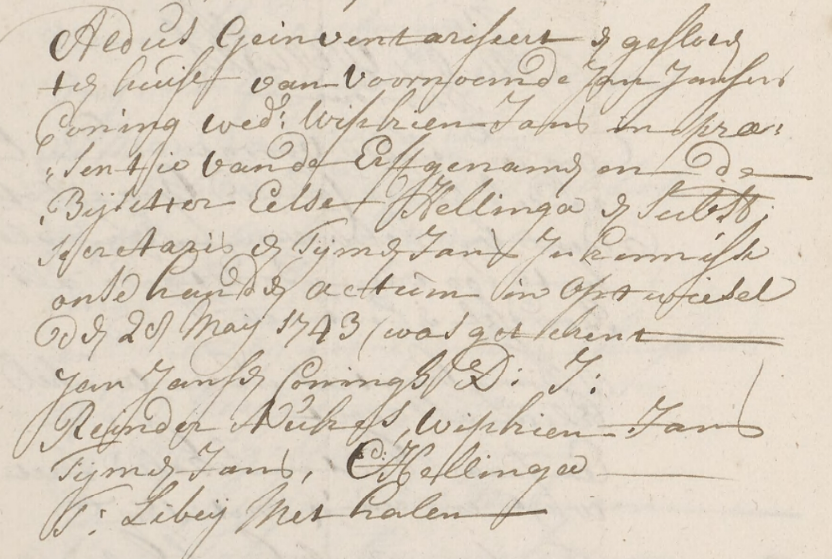 Aldus Geinventariseert & gesloten
ten huise van voornoemde Jan Jansens
Coning wed: Wiskien Jans in præ:
:sentie van de Erfgenamen en de
Bijsitter Eelse Hellinga & Subst:
Secretaris & Tymen Jans In kennisse
onse handen actum in Optwiesel
Den 28 Maij 1743 (was getekent
Jan Jansen Conings D: J:
Reinder Wiskien Jans
Tymen Jans, E: Hellinga
T: Libeij Met halen